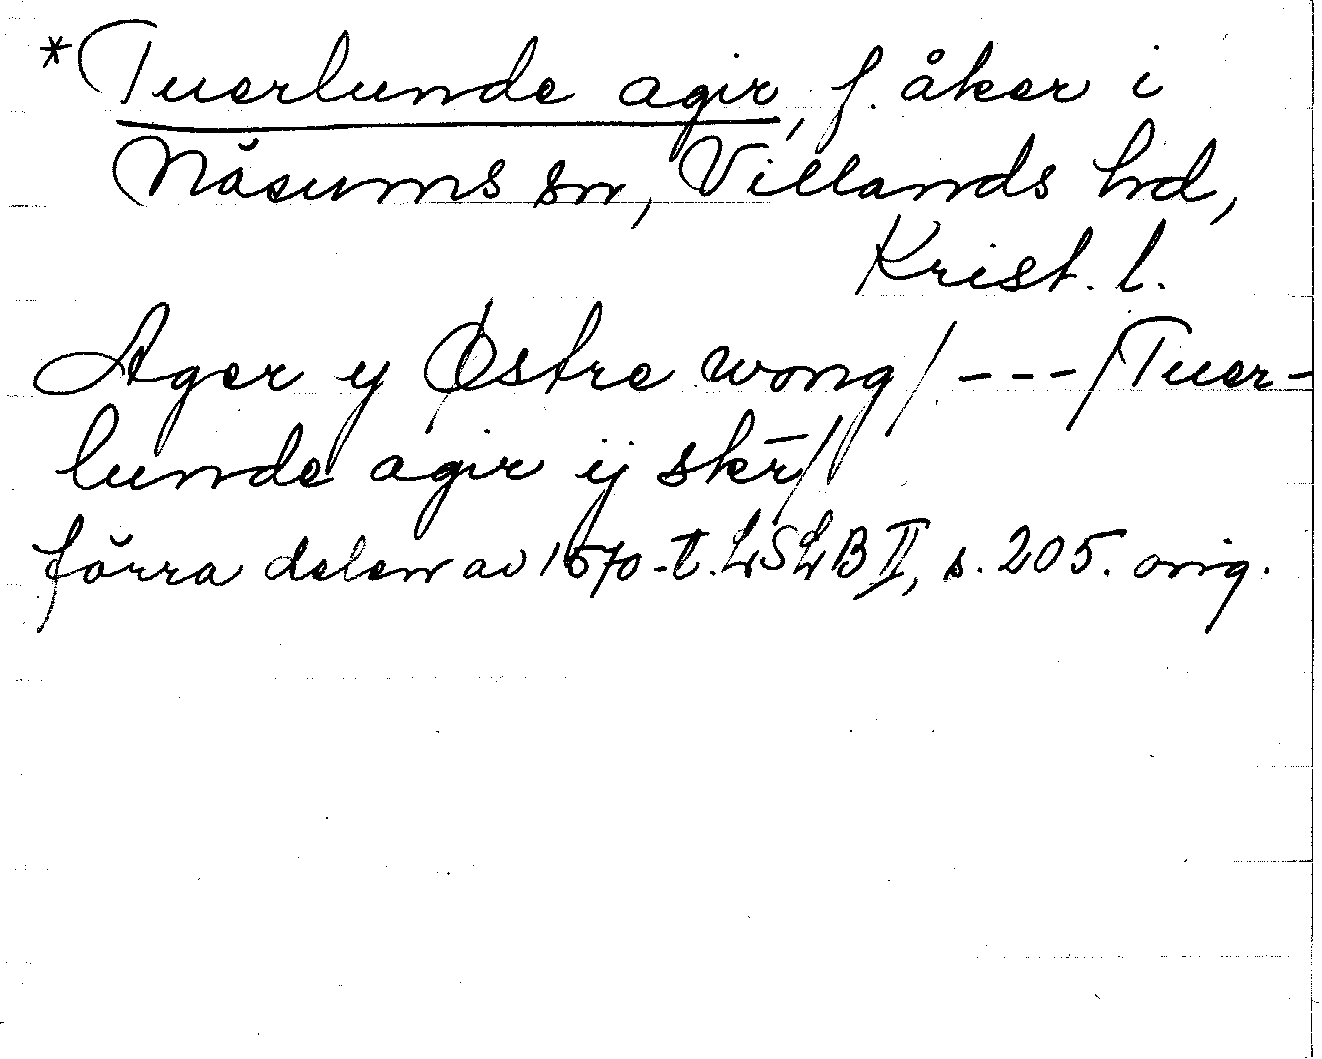 *Tuerlunde agir, f. åker i
Näsums sn, Villands hd,
Krist. l.
Ager y Østre wong/ --- /Tuer-
lunde agir ij skr̄//
förra delen av 1570-t. LSLB II, s. 205. orig.